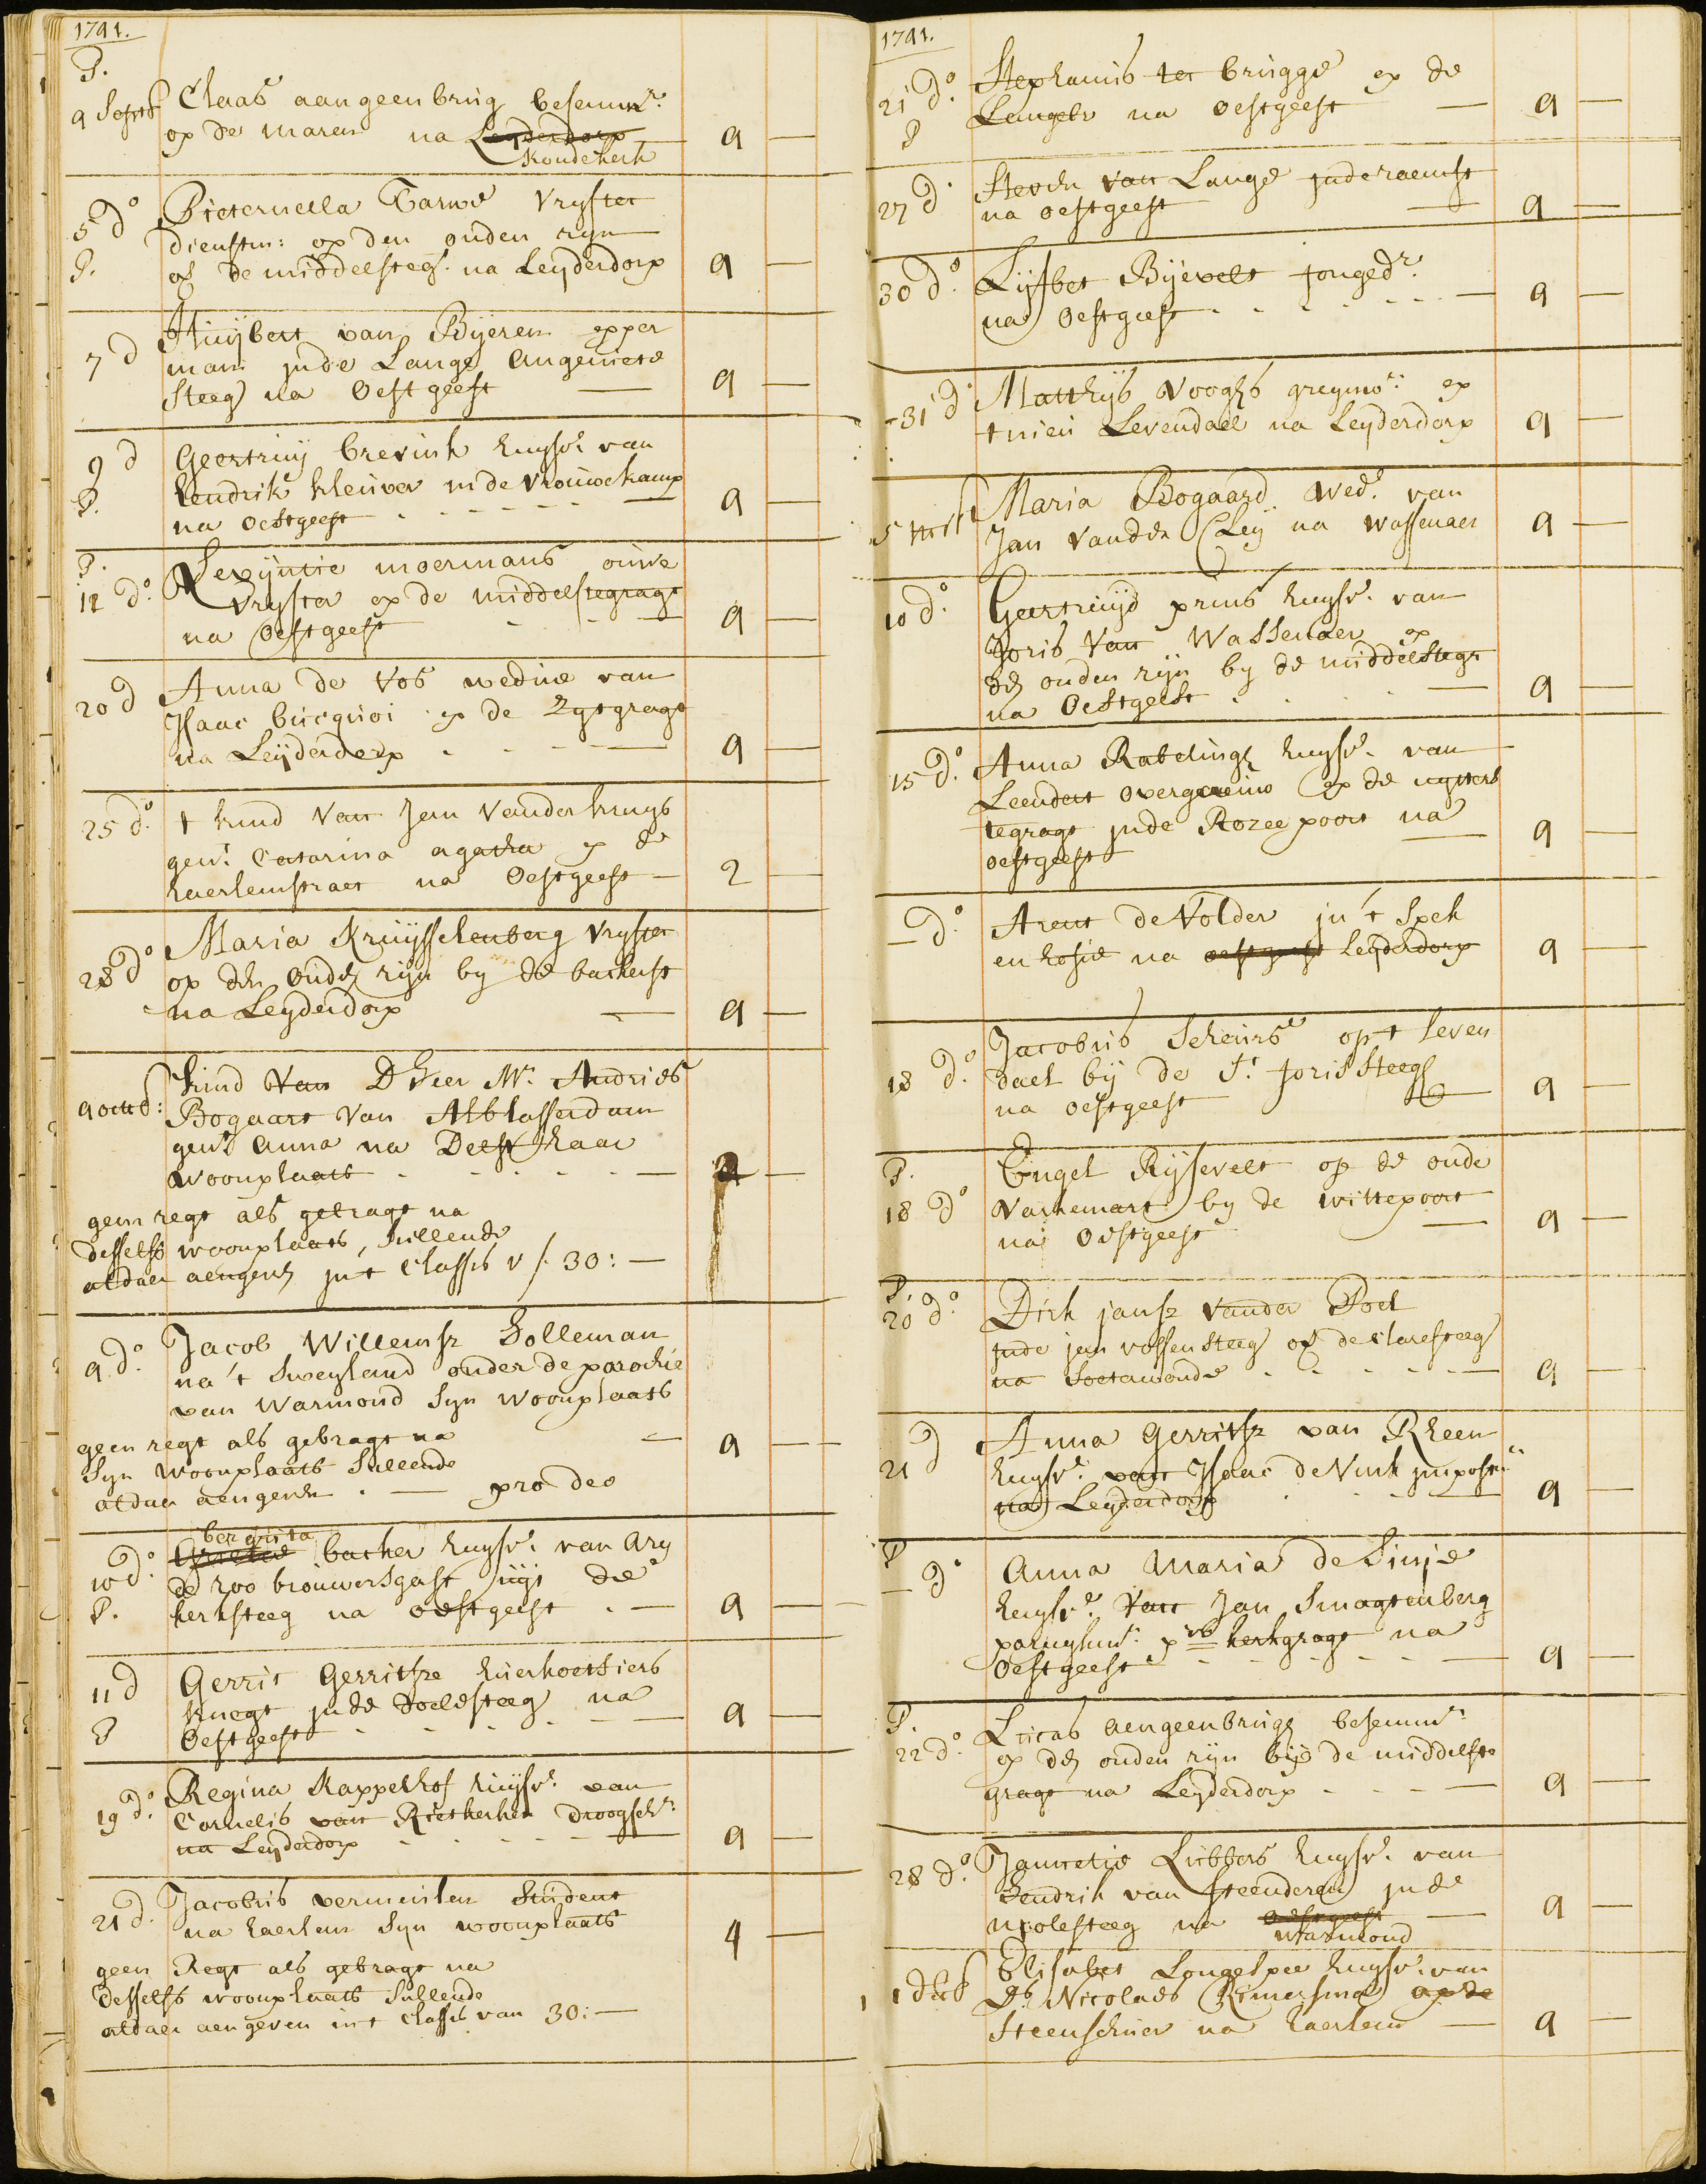 1741.
P.
4 Septb Claas aangeenbrug besemmr.
op de maren na Leyderdorp 4 —
Koudekerk
5 do Pieternella Tarwe Vryster
dienstm: op den ouden ryn
P. of de middelstegr. na Leyderdorp 4 —
Huijbert van Bijeren opper
7 d man inde Lange Angeniete
Steeg na Oestgeest — 4 —
9 d Geertruij brevink huysvr. van
P. hendrik kleuver in de vrouwekamp
na Oestgeest 4 —
P. Sevyntie moermans ouwe
12 do. Vryster op de middelstegragt
na Oestgeest — 4 —
20 d Anna de Vos weduwe van
Isaac Cucquoi op de Zytgragt
na Leijderdorp — 4 —
25 do. t kind Van Jan Vander kruys
gent. Catarina agatha op de
haerlemstraet na Oestgeest — 2 —
Maria Kruysschenberg Vryster
28 do op den oude rijn by de backerst
na Leyderdorp — 4 —
4 octob: kind Van D Heer Mr. Andries
Bogaart Van Alblasserdam
gent Anna na Delft haar
woonplaats —
geen regt als gebragt na
desselfs woonplaats, sullende
aldaer aengeven in t Classis v f 30:—
Jacob Willemsz Holleman
4 do. na 't Sweyland onder de parochie
van Warmond Syn woonplaats
geen regt als gebragt na — 4 —
Syn woonplaats Sullende
aldaer aengeven — pro deo
bergitta
10 do. Grietie backer huysvr. van Ary
de roo brouwersgast uijt de
P. kerksteeg na oestgeest — 4 —
11 d Gerrit Gerritsze huerkoetsiers
knegt inde Doelesteeg na
P Oestgeest — 4 —
Regina Kappelhof huijsvr. van
19 do. Cornelis van Rietkerken Droogschr.
na Leyderdorp — 4 —
21 d. Jacobus vermeulen Student
na haerlem Syn woonplaats 4 —
geen Regt als gebragt na
desselfs woonplaats Sullende
aldaer aengeven in t Classis van 30:—
1741.
21 do. Stephanis ter brugge op de
P Langebr na oestgeest — 4 —
27 d. Steven van Lange inde raemst
na oestgeest — 4 —
30 do. Lijsbet Bijevelt jongedr.
na Oestgeest — 4 —
31 d. Matthijs Vooghs greynwr: op
t nieu Levendael na Leyderdorp 4 —
5 Maria Bogaard Wedr. van
Jan Vander Cleij na wassenaer 4 —
10 do. Geertruijd prins huysvr. van
Joris Van Wassenaer op
den ouden rijn by de middelstegr
na Oestgeest — 4 —
15 do. Anna Rabelingh huysvr. van
Leendert overgauw op de uyters
tegragt inde Rozee poort na
oestgeest — 4 —
— do. Arent de Volder in 't Spek
en hosie na oestgeest leyderdorp 4 —
Jacobus Scheurs op t leven
18 do. dael bij de St. joris Steeg
na oestgeest — 4 —
P. Engel Rijsevelt op de oude
18 do Varkemart by de wittepoort
na Oestgeest — 4 —
P.
20 do. Dirk jansz Vander Poel
inde jan vossensteeg of de claresteeg
na Soetawoude — 4 —
21 d Anna Gerritsz van Rheen
huysvr. van Isaac de Vink
na Leyderdorp — 4 —
P
— do Anna Maria de Sinje
huysvr. Van Jan Smagtenberg
kerkgragt na
Oestgeest — 4 —
P.
22 do. Lucas aengeenbrugh besemmr:
op den ouden rijn bij de middelste
gragt na Leyderdorp — 4 —
28 do. Jannetie Lubbers huysvr. van
Hendrik van Steenderen inde
molesteeg na oestgeest — 4 —
warmond
1 Decb Elisabet Longespee huysvr. van
Ds Nicolaes Rimersma op de
Steenschuer na haerlem — 4 —